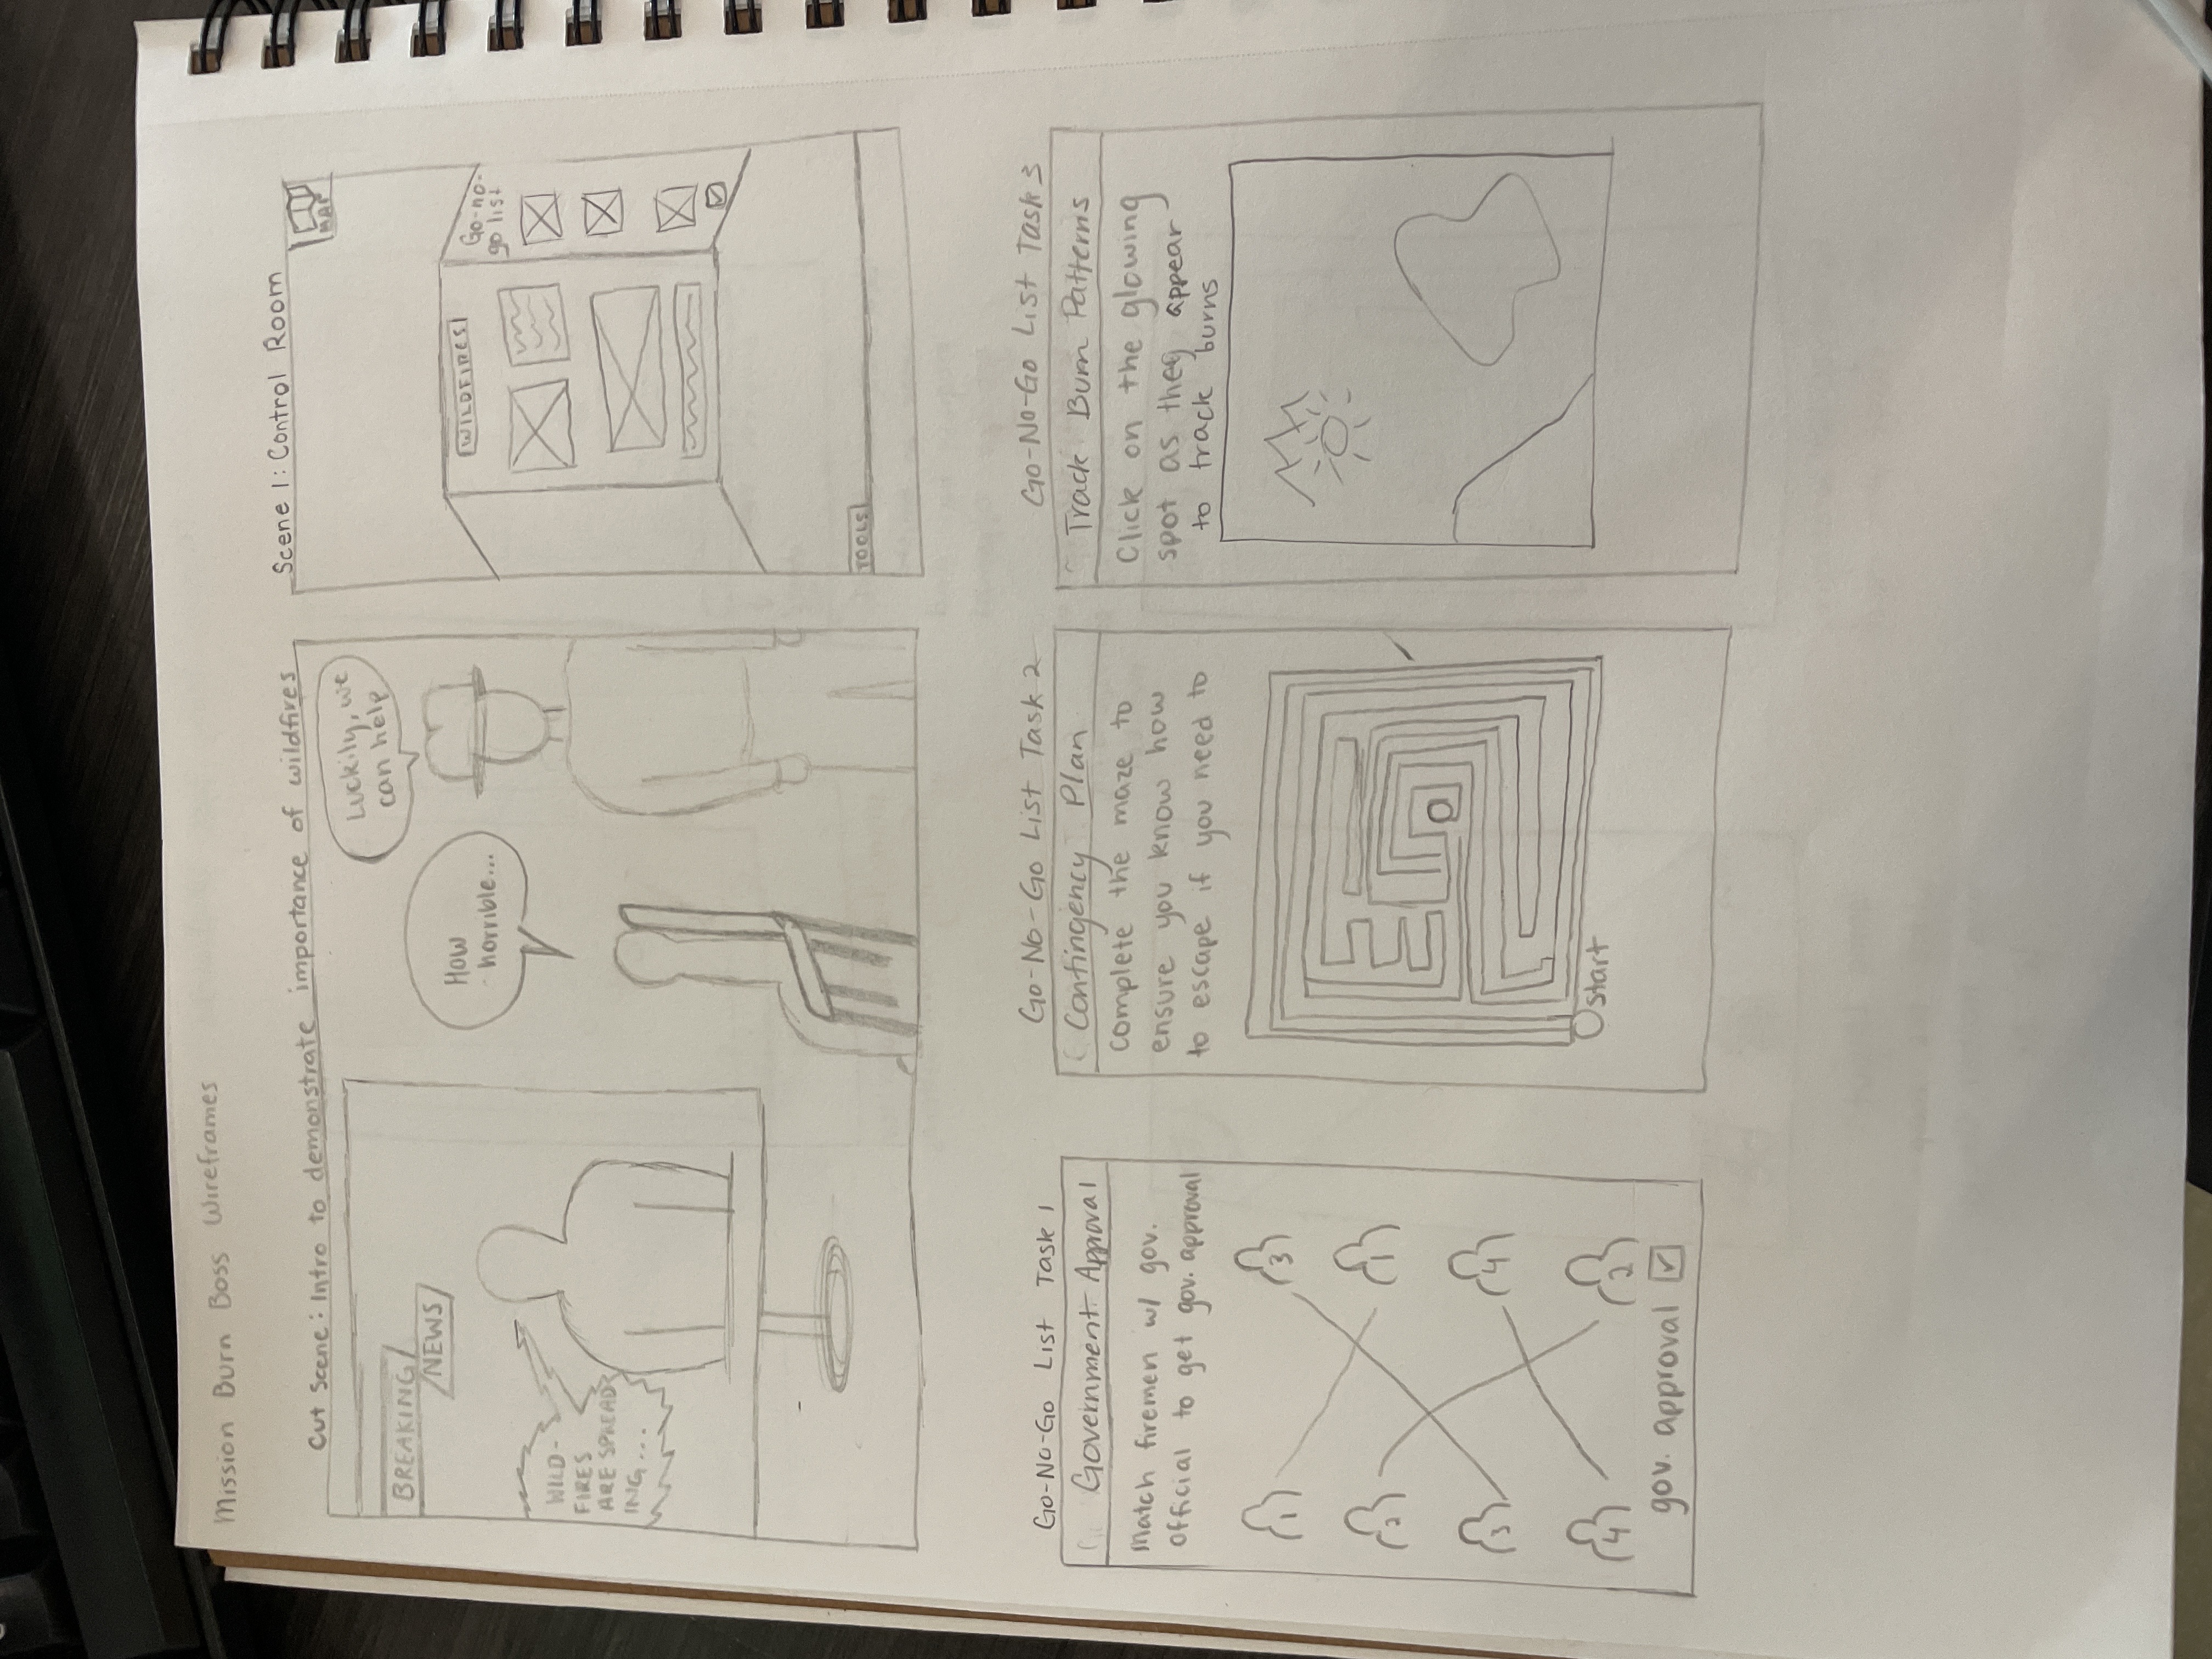 Mission Burn Boss Wireframes
Cut Scene: Intro to demonstrate importance of wildfires
BREAKING
NEWS
WILD-
FIRES
ARE SPREAD
ING...
How
horrible...
Luckily, we
can help
Scene 1: Control Room
MAP
WILDFIRES
Go-no-
go list
TOOLS
Go-No-Go List Task 1
Government Approval
Match firemen w/ gov.
official to get gov. approval
1
3
2
1
3
4
4
2
gov. approval
Go-No-Go List Task 2
Contingency Plan
complete the maze to
ensure you know how
to escape if you need to
start
Go-No-Go List Task 3
Track Burn Patterns
Click on the glowing
spot as they appear
to track burns